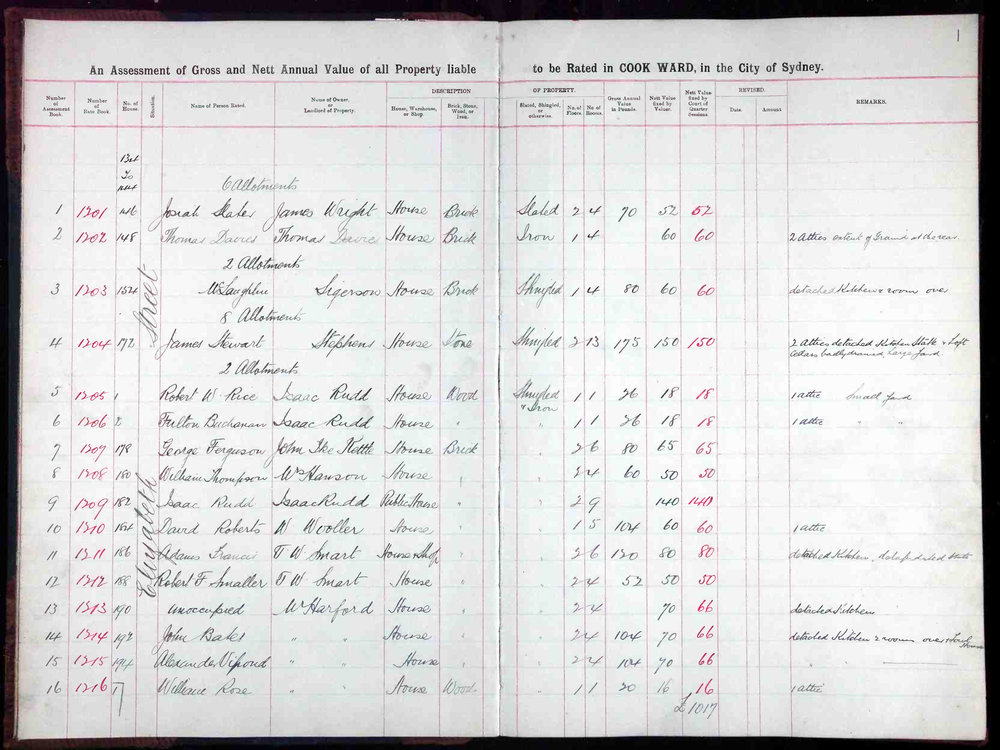 1
An Assessment of Gross and Nett Annual Value of all Property liable to be Rated in COOK WARD, in the City of Sydney.
Number of Assessment Book. Number of Rate Book. No. of House. Situation. Name of Person Rated. Name of Owner, or Landlord of Property. DESCRIPTION OF PROPERTY. House, Warehouse, or Shop. Brick, Stone, Wood, or Iron. Slated, Shingled, or otherwise. No. of Floors. No. of Rooms. Gross Annual Value in Pounds. Nett Value fixed by Valuer. Nett Value fixed by Court of Quarter Sessions REVISED. Date. Amount REMARKS.
To
144 6 Allotments
Elizabeth Street
1 1201 146 Josiah Slater James Wright House Brick Slated 2 4 70 52 52
2 1202 148 Thomas Davies Thomas Davies House Brick Iron 1 4 60 60 2 Attics extent of Ground at the rear
2 Allotments
3 1203 154 McLaughlin Sigerson House Brick Shingled 1 4 80 60 60 detached Kitchen & room over
8 Allotments
4 1204 172 James Stewart Stephens House Stone Shingled 2 13 175 150 150 2 Attics detached Kitchen Stable & Loft
Cellars badly drained, large yard
2 Allotments
5 1205 1 Robert W. Rice Isaac Rudd House Wood Shingled & Iron 1 1 26 18 18 1 attic Small yard
6 1206 2 Fulton Buchanan Isaac Rudd House " 1 1 26 18 18 1 attic " "
7 1207 178 George Ferguson John Ike Kettle House Brick 2 6 80 65 65
8 1208 180 William Thompson Wm Hanson House " 2 4 60 50 50
9 1209 182 Isaac Rudd Isaac Rudd Public House " 2 9 140 140
10 1210 184 David Roberts W Wooller House " 1 5 104 60 60 1 attic
11 1211 186 Adams Francis T W Smart House & Shop " 2 6 120 80 80 detached Kitchen, dilapidated state
12 1212 188 Robert F Smaller T W Smart House " 2 4 52 50 50
13 1213 190 unoccupied Wm Harford House " 2 4 70 66 detached Kitchen
14 1214 192 John Bates " " House " 2 4 104 70 66 detached Kitchen 2 rooms over & Fowl House
15 1215 194 Alexander Vipond " " House 2 4 104 70 66
16 1216 William Rose " " House Wood 1 1 20 16 16 1 attic
£1017